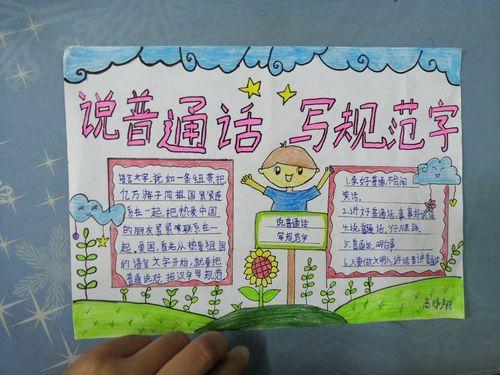 说普通话 写规范字
语言文字,犹如一条纽带,把
亿万海子同祖国紧紧连
系在一起,把热爱中国
的朋友紧紧联系在一
起。爱国,首先从热爱祖国
的语言文字开始,就要把
普通话说好,把汉字写规范
说普通话
写规范字
1.学好普通话
笑话。
2.讲好普通话,喜事好说话
4.说普通话,行万里路。
5.普通话,明白事
6.人要做文明人,话说普通话
高